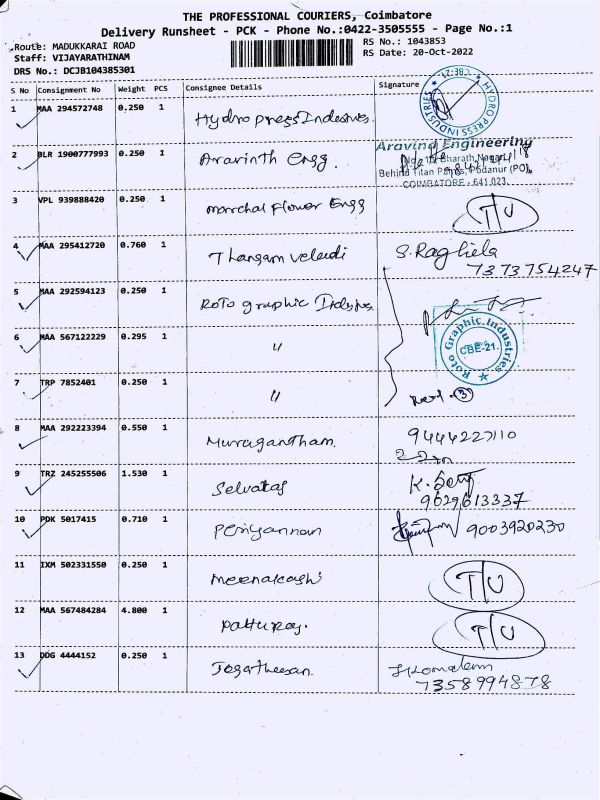 THE PROFESSIONAL COURIERS, Coimbatore
Delivery Runsheet - PCK - Phone No.:0422-3505555 - Page No.:1
Route: MADUKKARAI ROAD RS No.: 1043853
Staff: VIJAYARATHINAM RS Date: 20-Oct-2022
DRS No.: DCJB104385301
S No Consignment No Weight PCS Consignee Details Signature
1 MAA 294572748 0.250 1 Hydro press Industries
HYDRO PRESS INDUSTRIES
2 BLR 1900777993 0.250 1 Aravinth Engg.
Aravind Engineering
Bharath Nagar,
Behind Titan Paints, Podanur (PO),
COIMBATORE - 641 023.
3 VPL 939888420 0.250 1 Marchal flower Engg T/U
4 MAA 295412720 0.760 1 Thangam veludi S. Raghela
7373754247
5 MAA 292594123 0.250 1 Roto graphic Industries
Roto Graphic Industries
CBE-21.
6 MAA 567122229 0.295 1 "
7 TRP 7852401 0.250 1 " (3)
8 MAA 292223394 0.550 1 Murugantham. 9444227110
9 TRZ 245255506 1.530 1 Selvaraj K.
9629613337
10 PDK 5017415 0.710 1 Periyannan 9003920230
11 IXM 502331550 0.250 1 Meenakashi T/U
12 MAA 567484284 4.800 1 Patturaj. T/U
13 DDG 4444152 0.250 1 Jegatheesan.
7358994878